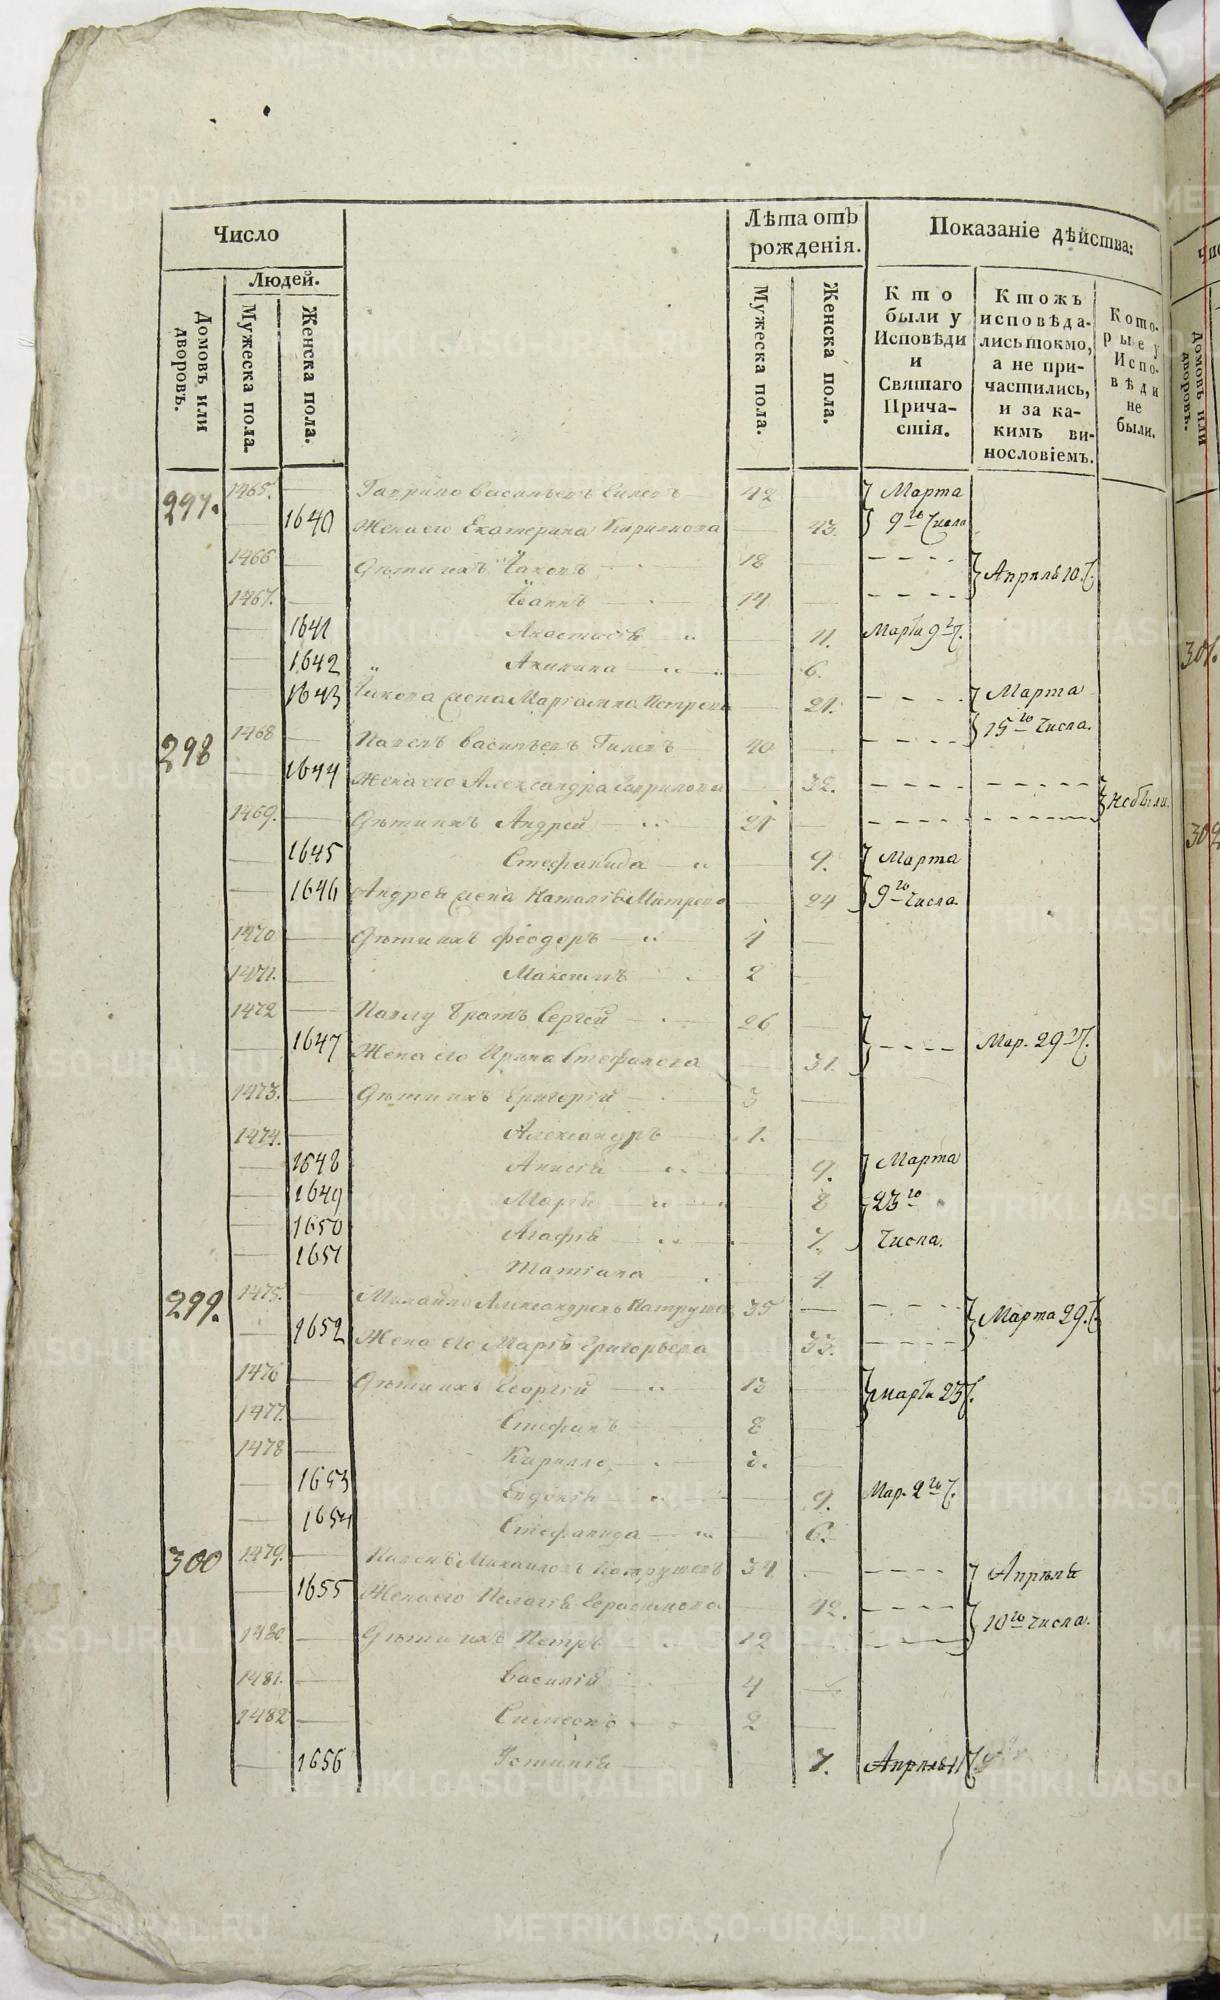 Число
Людей.
Домовъ или дворовъ.
Мужеска пола.
Женска пола.
Лѣта отъ рожденія.
Мужеска пола.
Женска пола.
Показаніе дѣйства:
Кто были у Исповѣди и Святаго Причастія.
Ктожъ исповѣдались токмо, а не причастились, и за какимъ винословіемъ.
Которые у Исповѣди не были.
297. 1465. Гаврило Васильевъ 42 Марта
1640 Жена его Екатерина Кирилова 43. 9го Числа
1466 Дѣти ихъ Іаковъ 18 Апрѣль 10.
1467. Іоаннъ 14
1641 Анастасія 11. Марта 9
1642 Акилина 6.
1643 Іакова жена Маріамна Петрова 21. Марта
15го Числа.
298 1468 Павелъ Васильевъ 40
1644 Жена его Александра Гаврилова 32. не были.
1469. Дѣти ихъ Андрей 21
1645 Стефанида 9. Марта
1646 Андрея жена Наталія 24 9го Числа
1470 Дѣти ихъ Феодоръ 4
1471. Максимъ 2
1472 Павлу братъ Сергей 26
1647 Жена его Ирина Стефанова 31. Мар. 29
1473. Дѣти ихъ Григорій 3
1474. Александръ 1.
1648 Анисія 9. Марта
1649 Марія 8 23го
1650 Агафія 7. Числа.
1651 Татіана 4
299. 1475. Михайло Александровъ 35 Марта 29.
1652 Жена его Марія Григорьева 33.
1476 Дѣти ихъ Георгій 13 марта 23
1477. Стефанъ 8
1478 Кирилло 3.
1653 Евдокія 9. Мар. 2го
1654 Стефанида 6.
300 1479. Михаиловъ 34 Апрѣля
1655 Жена его Пелагія Герасимова 42. 10го числа.
1480 Дѣти ихъ Петръ 12
1481. Василій 4
1482 Симеонъ 2
1656 Устинія 7. Апрѣль
301.
302
METRIKI.GASO-URAL.RU